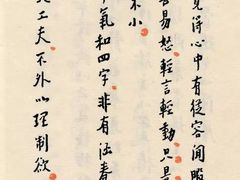 見得心中有從容閒暇
喜易怒輕言輕動只是
不小
氣和四字非有涵養
工夫不外以理制欲